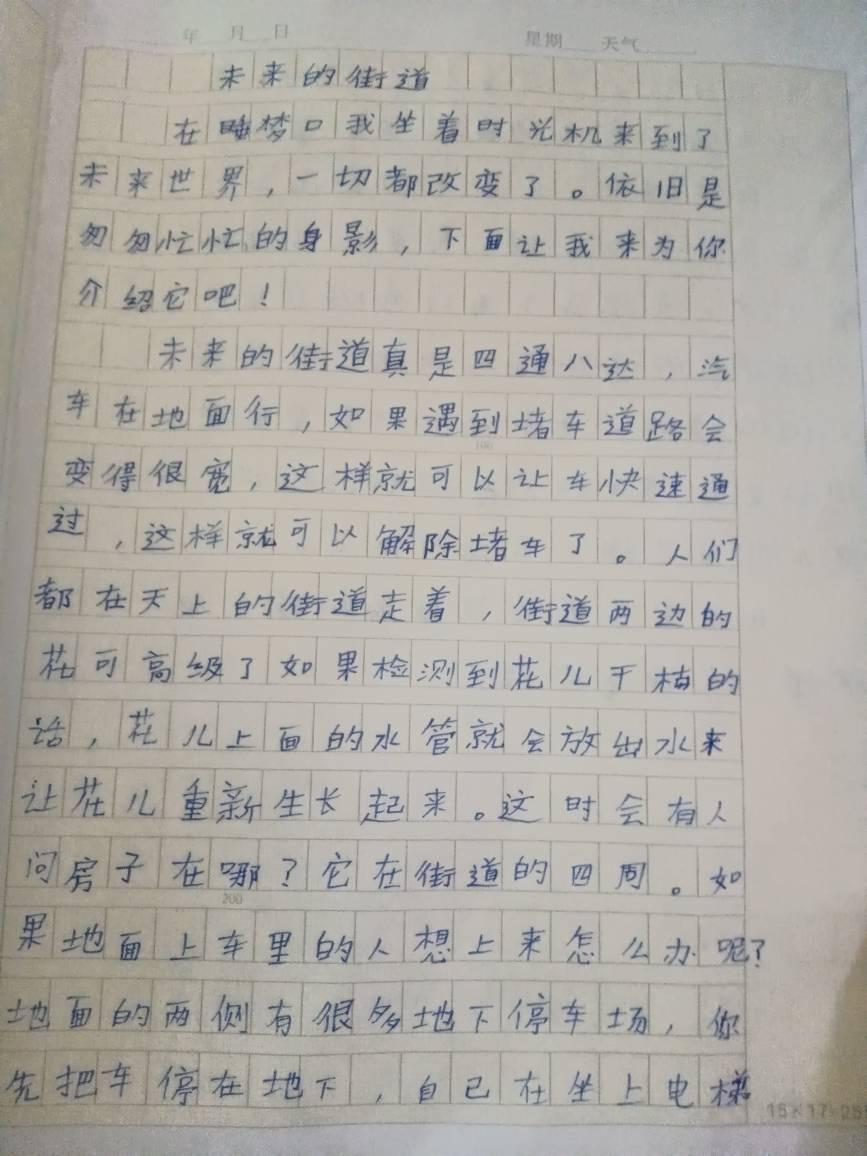 年 月 日 星期 天气
未来的街道
在睡梦口我坐着时光机来到了
未来世界，一切都改变了。依旧是
匆匆忙忙的身影，下面让我来为你
介绍它吧！
未来的街道真是四通八达，汽
车在地面行，如果遇到堵车道路会
100
变得很宽，这样就可以让车快速通
过，这样就可以解除堵车了。人们
都在天上的街道走着，街道两边的
花可高级了如果检测到花儿干枯的
话，花儿上面的水管就会放出水来
让花儿重新生长起来。这时会有人
问房子在哪？它在街道的四周。如
200
果地面上车里的人想上来怎么办呢？
地面的两侧有很多地下停车场，你
先把车停在地下，自己在坐上电梯
15×17=255